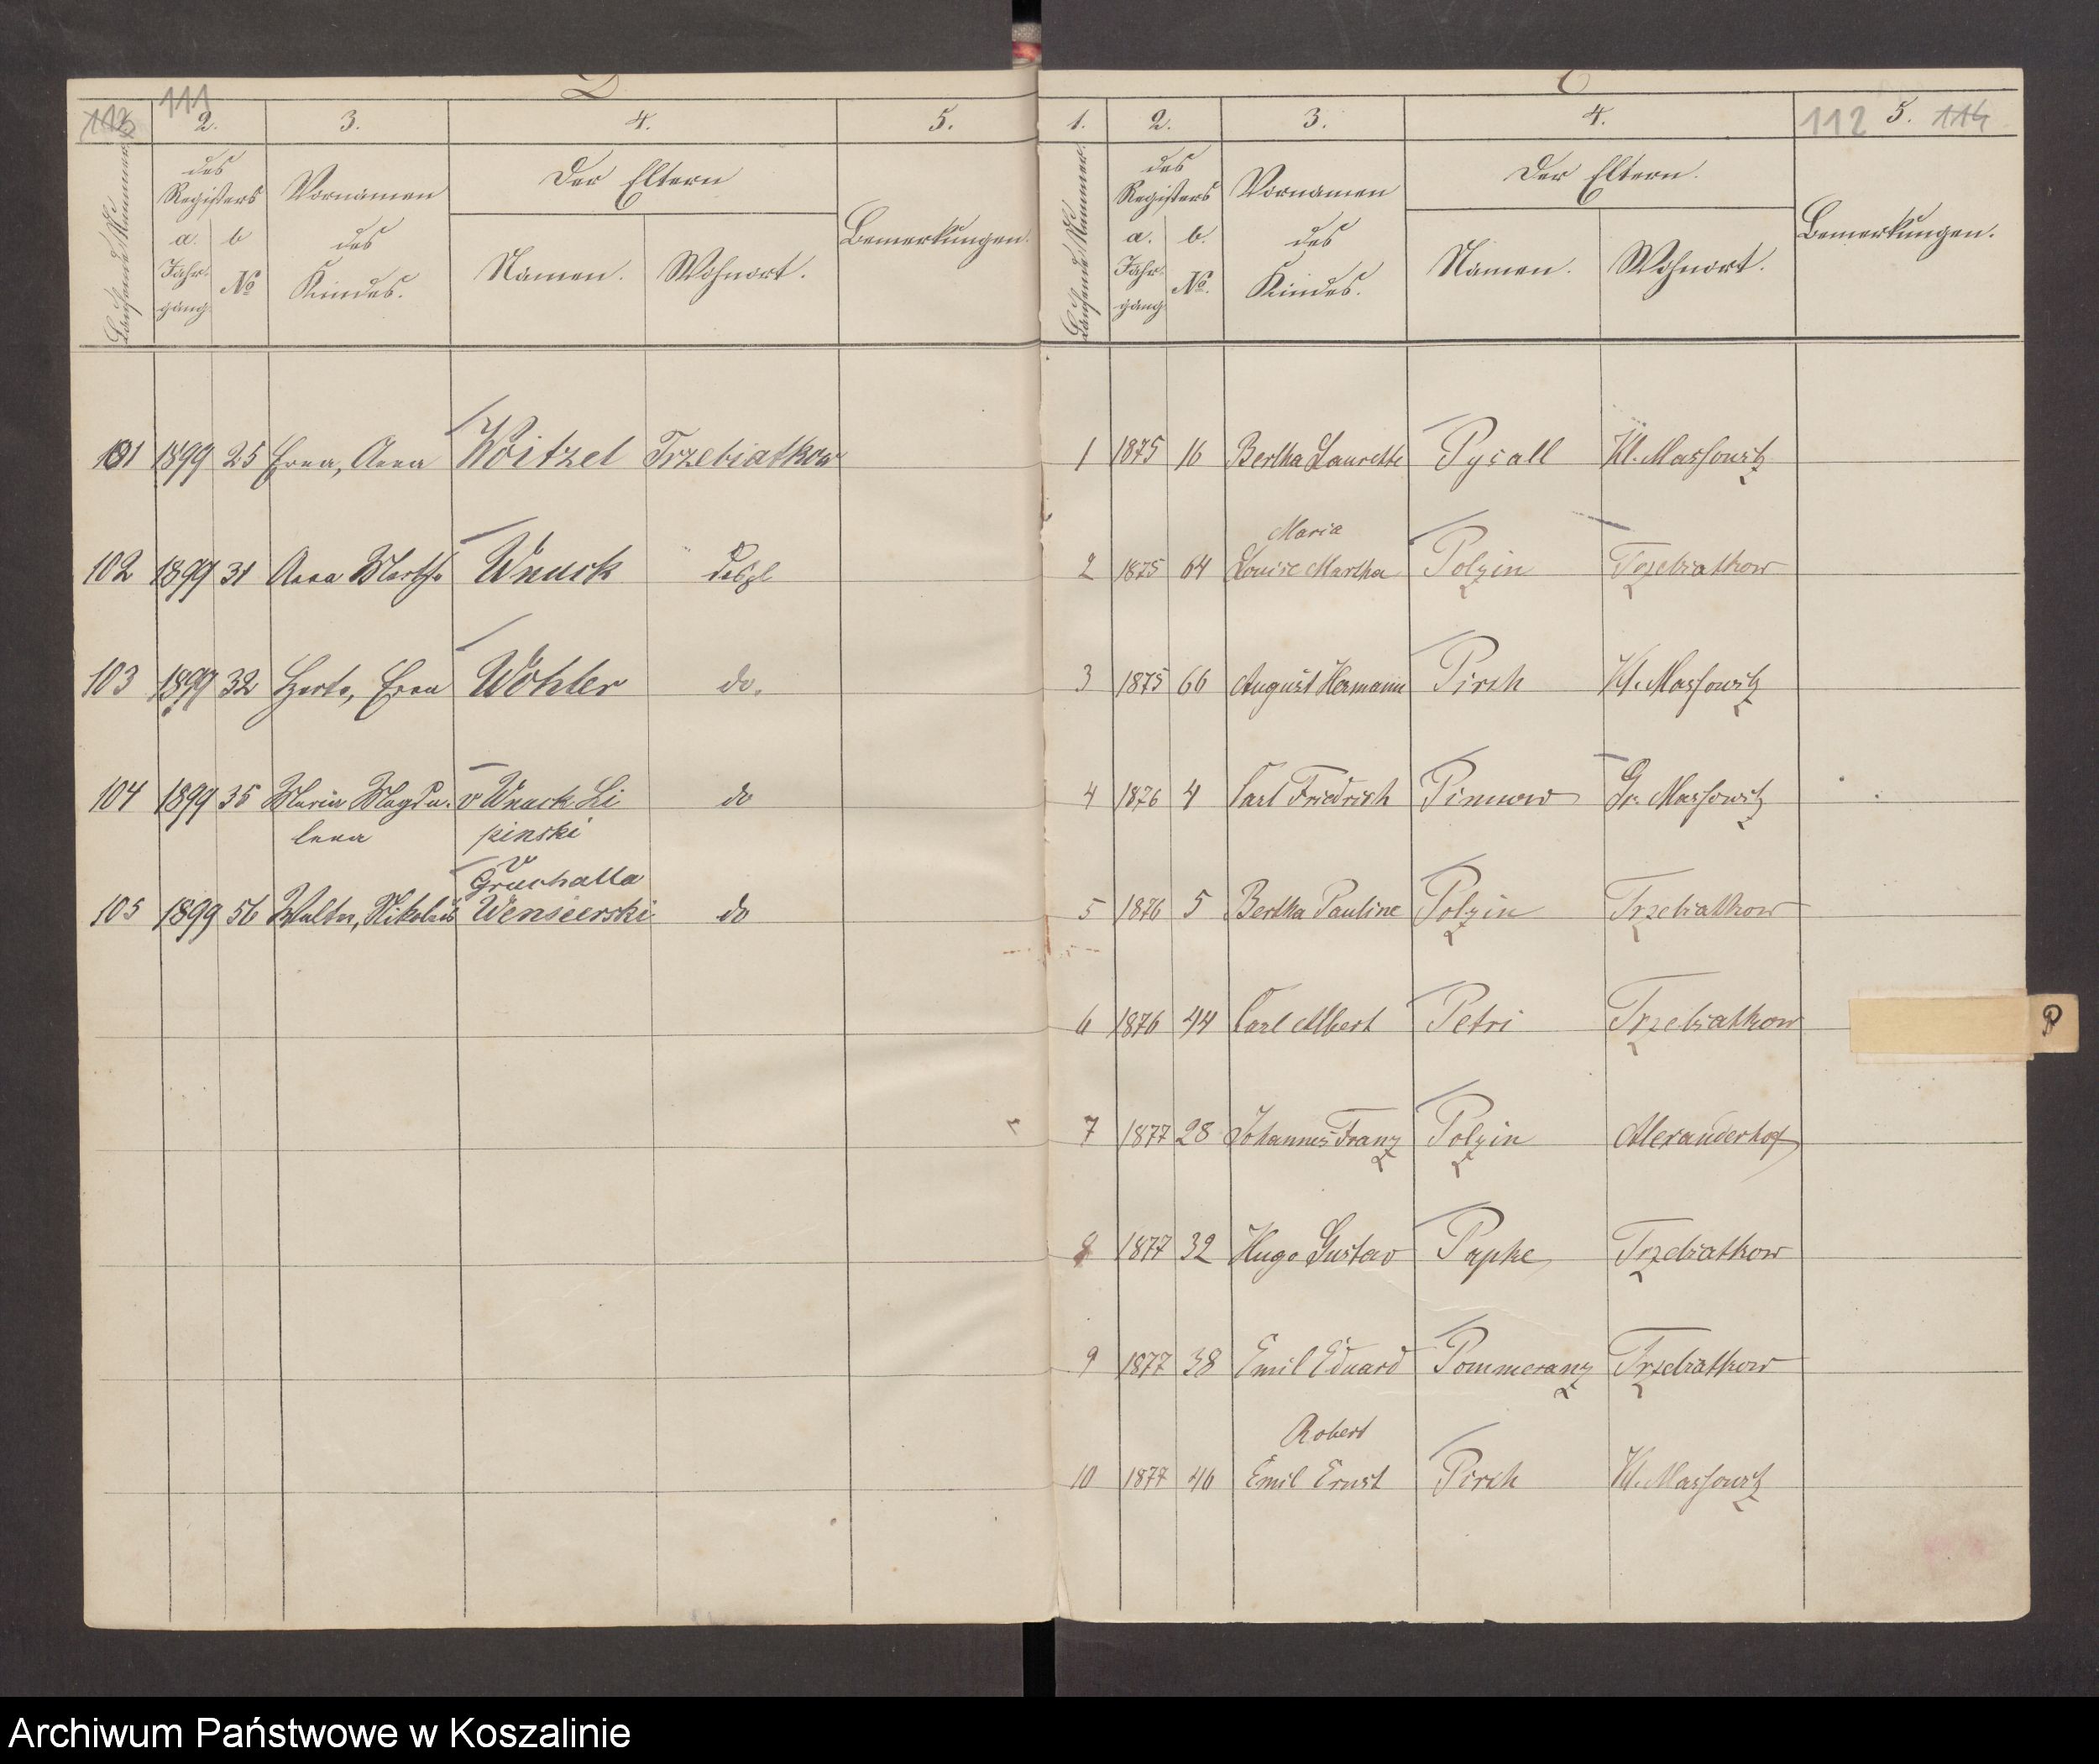 113 111
2. 3. 4. 5.
Laufende Nummer
des Registers
a. Jahrgang
b No
Vornamen des Kindes.
Der Eltern
Namen. Wohnort.
Bemerkungen.
101 1899 25 Erna, Anna Woitzel Trzebiatkow
102 1899 31 Anna Martha Wnuck desgl
103 1899 32 Herta, Erna Wöhler do.
104 1899 35 Maria Magda- v Wnuck Li do
lena pinski
v
Gruchalla
105 1899 56 Walter, Nikolaus Wensierski do
112 114
1. 2. 3. 4. 5.
Laufende Nummer.
des Registers
a. Jahrgang
b. No.
Vornamen des Kindes.
Der Eltern.
Namen. Wohnort.
Bemerkungen.
1 1875 16 Bertha Laurette Pysall Kl. Massowitz
Maria
2 1875 64 Louise Martha Polzin Trzebiatkow
3 1875 66 August Hermann Pirch Kl. Massowitz
4 1876 4 Carl Friedrich Pinnow Gr. Massowitz
5 1876 5 Bertha Pauline Polzin Trzebiatkow
6 1876 44 Carl Albert Petri Trzebiatkow
P
7 1877 28 Johannes Franz Polzin Alexanderhof
8 1877 32 Hugo Gustav Papke Trzebiatkow
9 1877 38 Emil Eduard Pommeranz Trzebiatkow
Robert
10 1877 46 Emil Ernst Pirch Kl. Massowitz
Archiwum Państwowe w Koszalinie